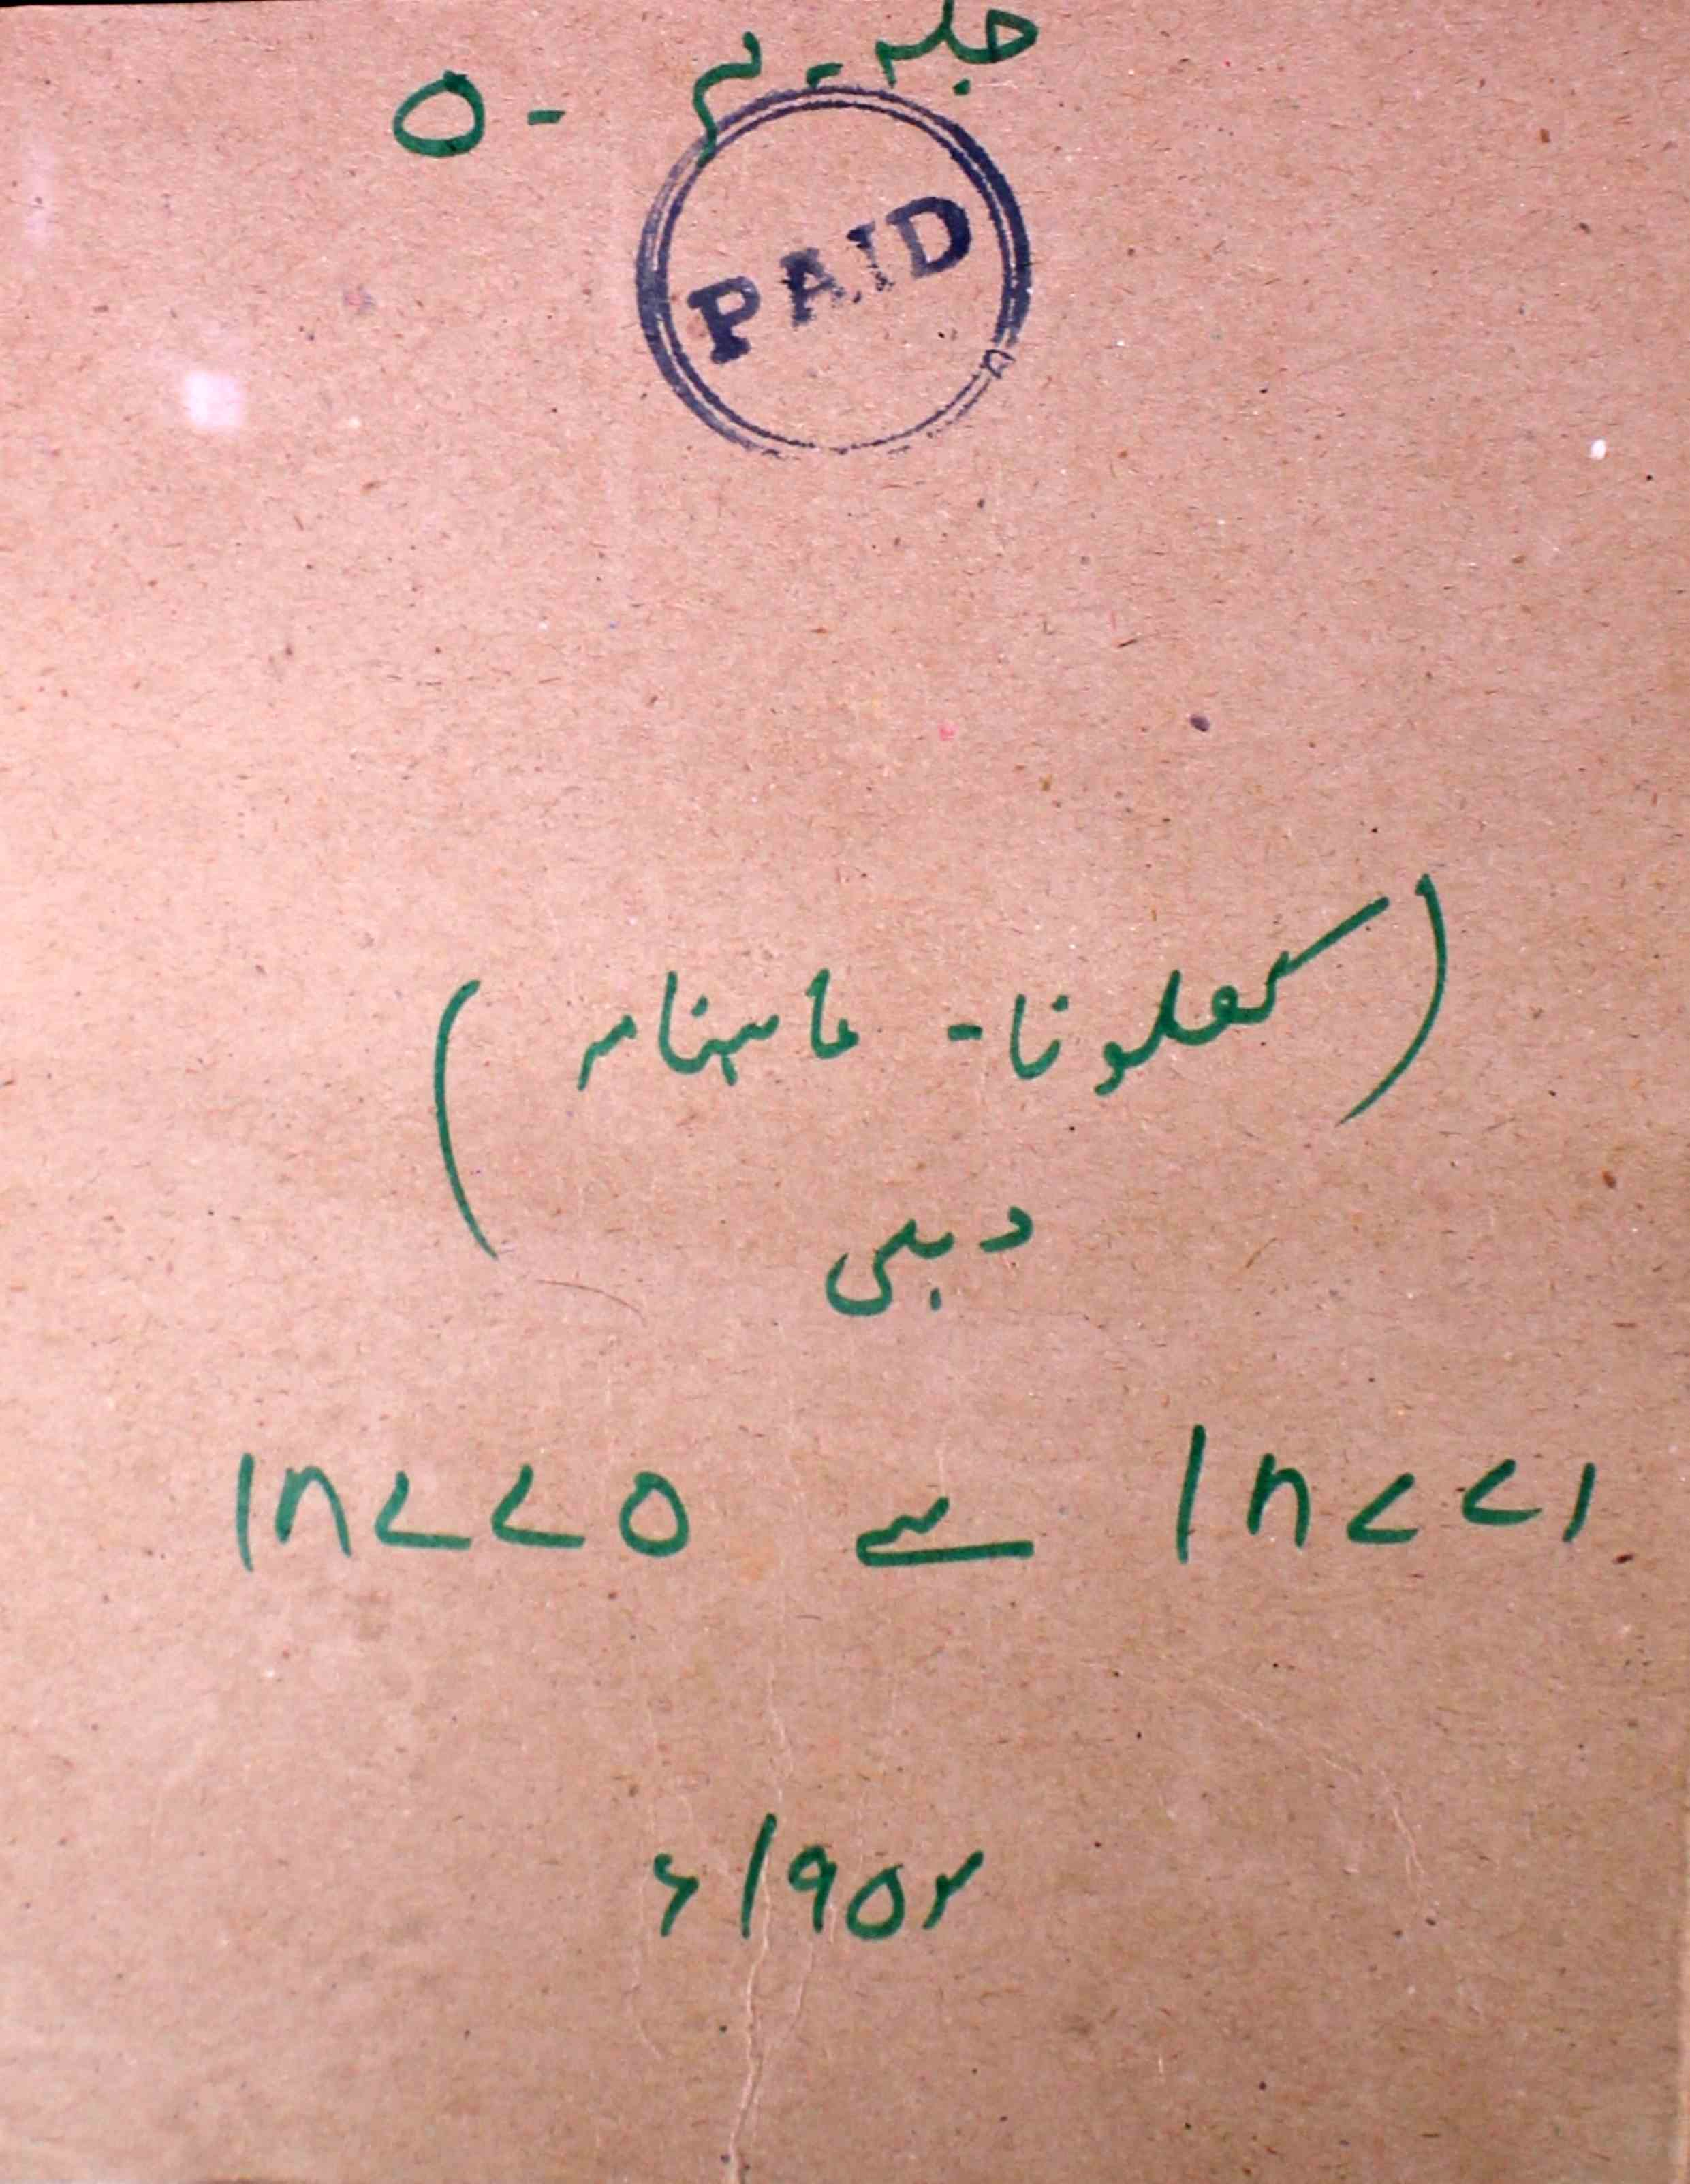 جلد - ۴ - ۵
PAID
(کھلونا - ماہنامہ)
دہلی
۱۸۷۷۱ سے ۱۸۷۷۵
۱۹۵۲ء